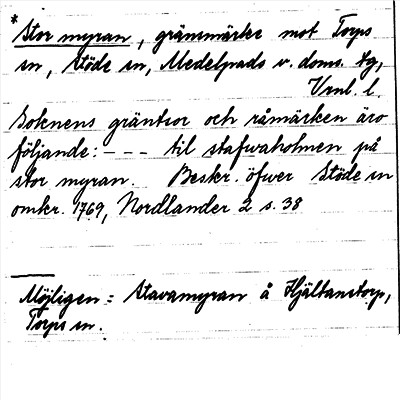 * Stor myran, gränsmärke mot Torps
sn, Stöde sn, Medelpads v. doms. tg,
Vrnl. l.
Soknens gräntsor och råmärken äro
följande: - - - til stafwaholmen på
stor myran. Beskr. öfwer Stöde sn
omkr. 1769, Nordlander 2 s. 38
Möjligen = Stavamyran å Hjältanstorp,
Torps sn.